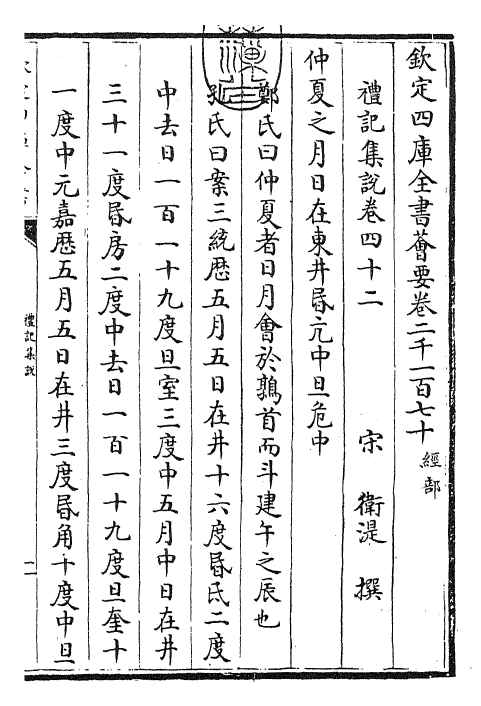 欽定四庫全書薈要卷二千一百七十 經部
禮記集說卷四十二 宋 衛湜 撰
仲夏之月日在東井昏亢中旦危中
鄭氏曰仲夏者日月會於鶉首而斗建午之辰也
孔氏曰案三統歴五月五日在井十六度昏氐二度
中去日一百一十九度旦室三度中五月中日在井
三十一度昏房二度中去日一百一十九度旦奎十
一度中元嘉歴五月五日在井三度昏角十度中旦
禮記集說